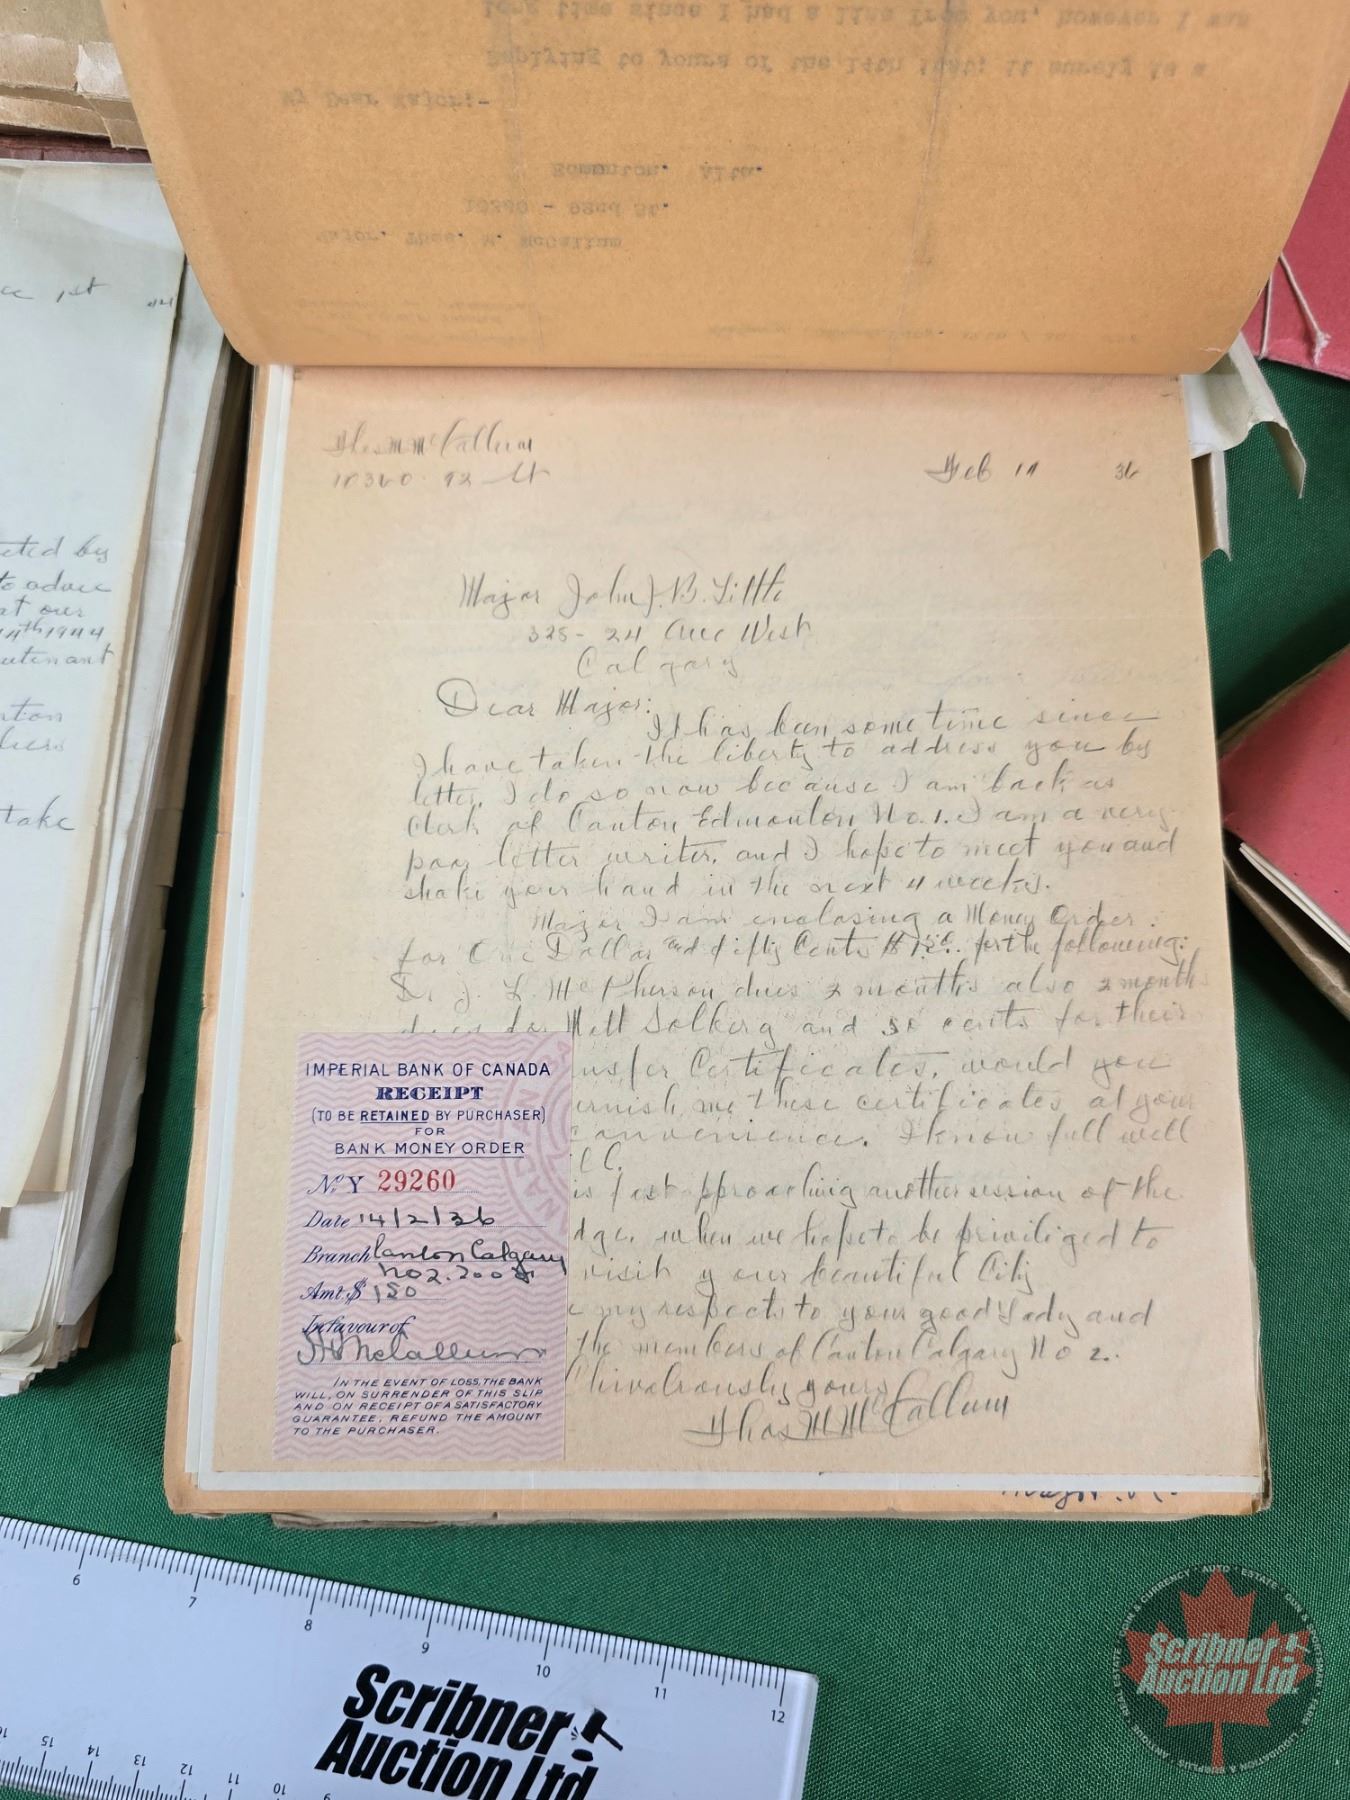 long time since I had a line from you, however I was
Replying to yours of the 14th inst; it surely is a
My Dear Major:-
Edmonton. Alta.
10360 - 92nd St.
Major. Thos. M. McCallum
1st
cted by
to advise
at our
14th 1944
eutenant
nton
take
Thos M McCallum
10360. 92 St
Feb 14 36
Major John J. B. Little
325 - 24 Ave West
Calgary
Dear Major:
It has been some time since
I have taken the liberty to address you by
letter. I do so now because I am back as
Clerk of Canton Edmonton No. 1. I am a very
poor letter writer, and I hope to meet you and
shake your hand in the next 4 weeks.
Major I am enclosing a Money Order
for One Dollar and fifty Cents for the following:
J. L. McPherson dues 2 months also 2 months
dues for Matt Solberg and 50 cents for their
nsfer Certificates, would you
urnish me these certificates at your
convenience. I know full well
is fast approaching another session of the
dge. when we hope to be priviliged to
visit your beautiful City
my respects to your good Lady and
the members of Canton Calgary No 2.
Chivalrously yours
Thos M McCallum
IMPERIAL BANK OF CANADA
RECEIPT
(TO BE RETAINED BY PURCHASER)
FOR
BANK MONEY ORDER
No. Y 29260
Date 14/2/36
Branch Canton Calgary
No 2.
Amt. $ 150
In favour of
McCallum
IN THE EVENT OF LOSS, THE BANK
WILL, ON SURRENDER OF THIS SLIP
AND ON RECEIPT OF A SATISFACTORY
GUARANTEE, REFUND THE AMOUNT
TO THE PURCHASER.
6 7 8 9 10 11 12
Scribner
Auction Ltd
15 14 13 12 11 10
Scribner
Auction Ltd.